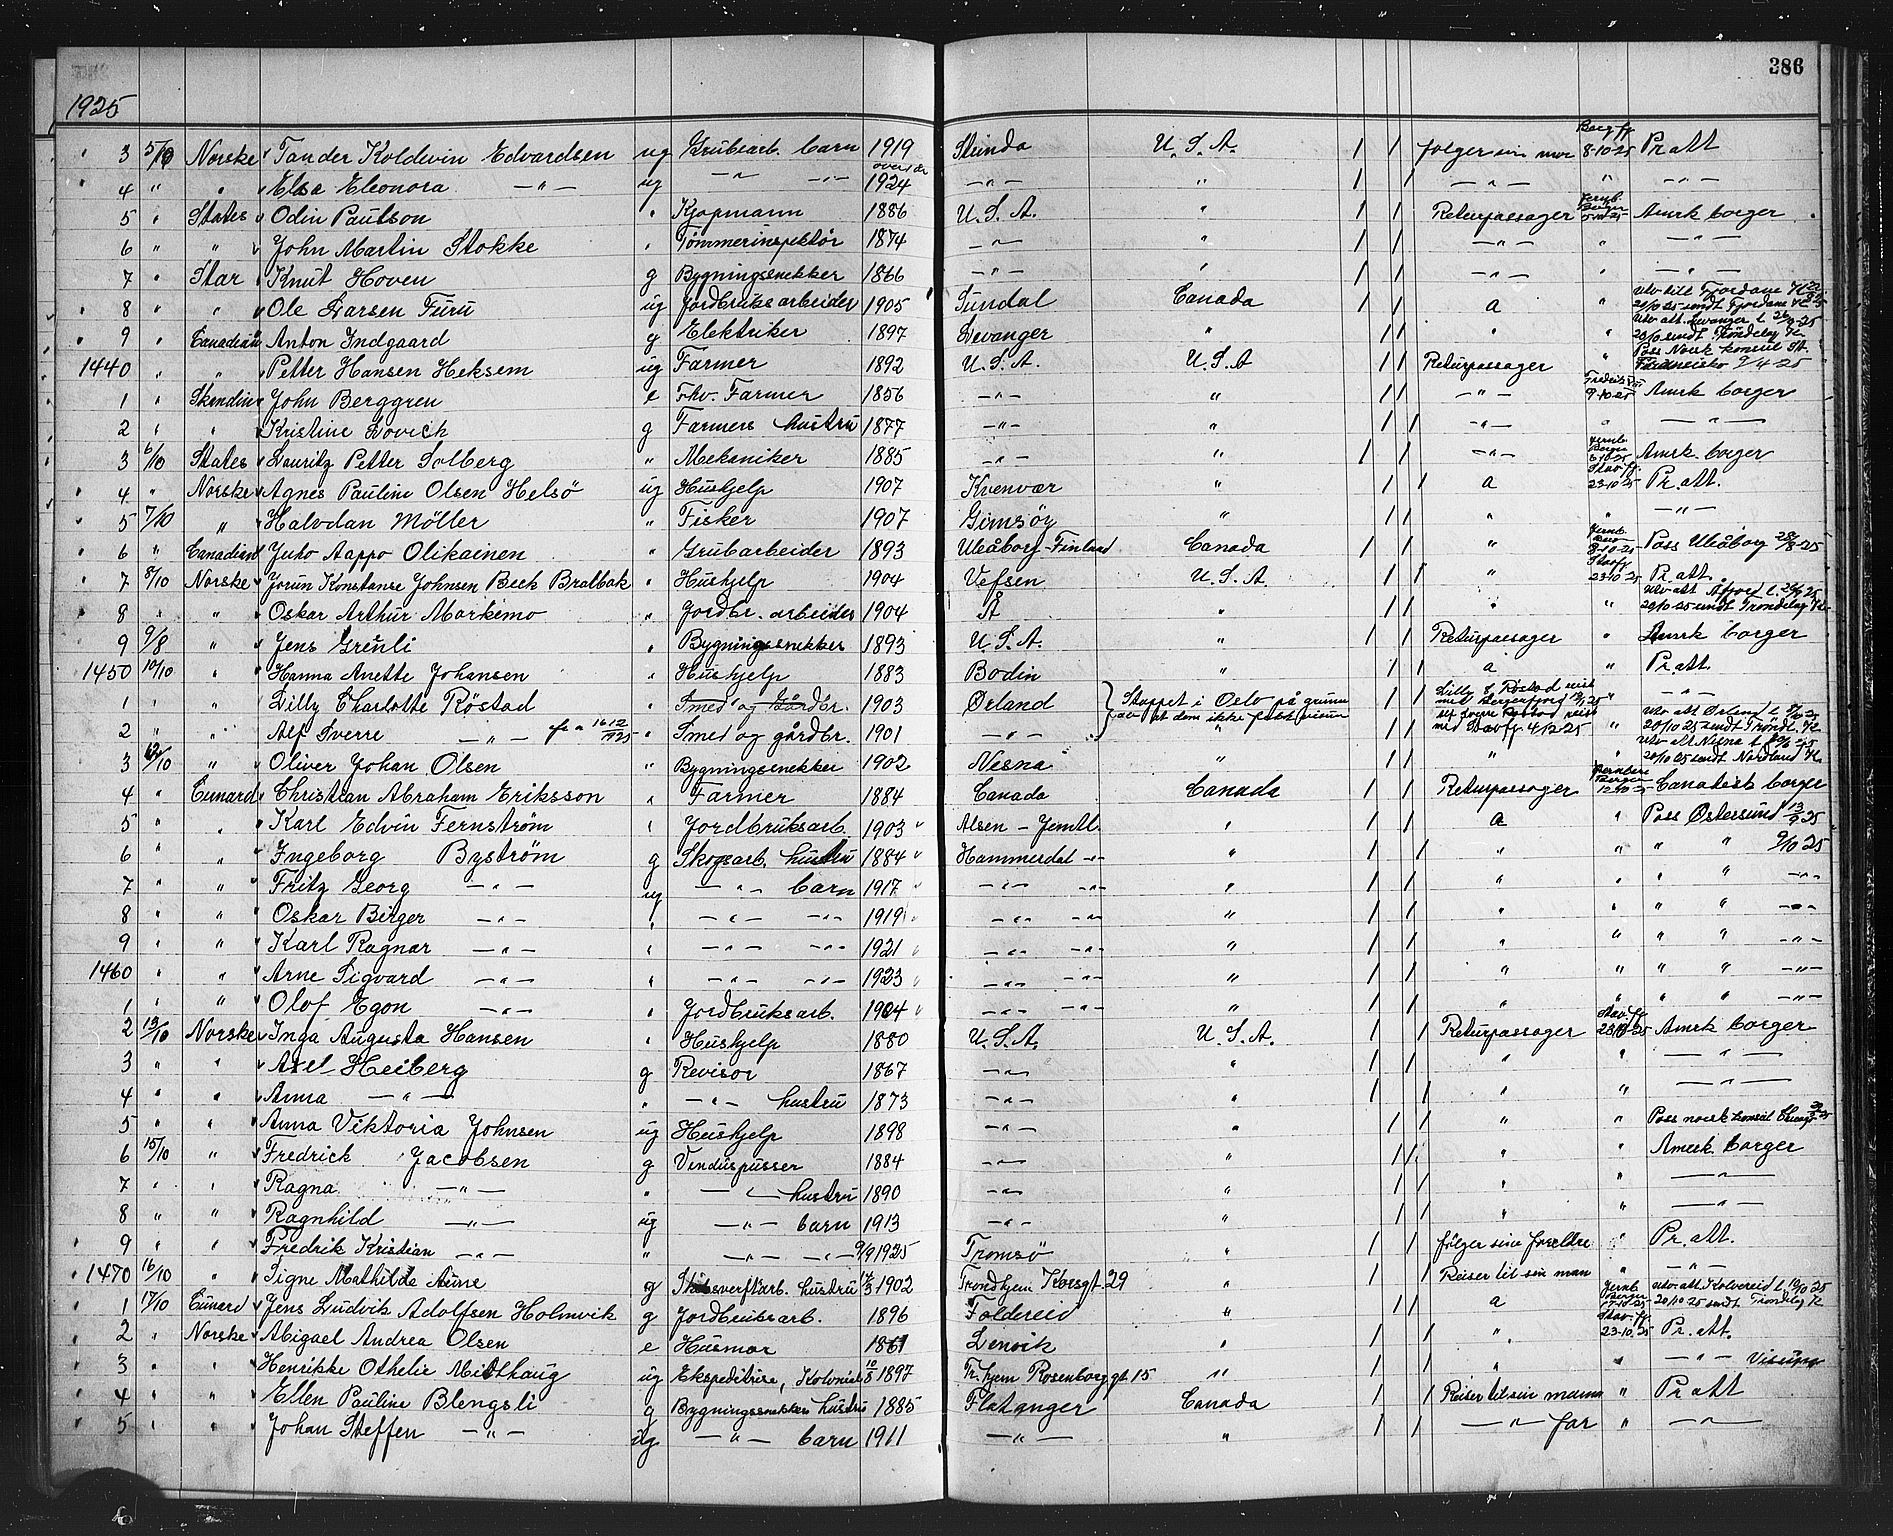 386
1925
3 5/10 Norske Tander Koldevin Edvardsen ug Grubearb. barn 1919 Stunda U.S.A. 1 1 følger sin mor Berg.fj. 8-10-25 Pr att
4 " " Elsa Eleonora —"— ug —"— —"— over 1 år 1924 —"— " 1 1 —"— " —"—
5 " States Odin Paulson " Kjøpmann 1886 U.S.A. " 1 1 Returpassager Jernb. Bergen Amrk borger
6 " " John Martin Stokke " Tømmerinspektør 1874 —"— " 1 1 —"— " —"—
7 " Star Knut Hoven g Bygningssnekker 1866 —"— " 1 1 —"— " —"—
8 " " Ole Larsen Furu ug Jordbruksarbeider 1905 Sundal Canada 1 1 a "
9 " Canadian Anton Indgaard g Elektriker 1897 Levanger " 1 1 " "
1440 " " Petter Hansen Heksem ug Farmer 1892 U.S.A. U.S.A 1 1 Returpassager " Pass Norsk konsul St. Francisko 9/4-25
1 " Skandin John Berggren e Fhv. Farmer 1856 —"— " 1 1 —"— 9-10-25 Amrk borger
2 " " Kristine Lovich g Farmers hustru 1877 —"— " 1 1 —"— " —"—
3 6/10 States Lauritz Petter Solberg " Mekaniker 1885 —"— " 1 1 —"— Jernb. Bergen 6-10-25 Amrk. borger
4 " Norske Agnes Pauline Olsen Helsö ug Hushjelp 1907 Kvenvær " 1 1 a Stav.fj. 23-10-25 Pr. att.
5 7/10 " Halvdan Möller " Fisker 1907 Gimsöy " 1 1 " " —"—
6 " Canadian Juho Aappo Olikainen " Grubarbeider 1893 Uleåborg-Finland Canada 1 1 " 8-10-25 Pass Uleåborg 28/8-25
7 8/10 Norske Jorun Konstanse Johnsen Beck Bralbak " Hushjelp 1904 Vefsen U.S.A. 1 1 " Stavfj 23-10-25 Pr. att.
8 " " Oskar Arthur Markemo " Jordbr. arbeider 1904 Å " 1 1 " "
9 9/8 " Jens Grenli " Bygningssnekker 1893 U.S.A. " 1 1 Returpassager " Amrk borger
1450 10/10 " Hanna Anette Johansen " Hushjelp 1883 Bodin " 1 1 a " Pr. att.
1 " " Lilly Charlotte Röstad " Smed og Gårdbr. 1903 Ørland Stoppet i Oslo på grunn 1 1 " —"—
2 " " Alf Sverre —"— " Smed og gårdbr. 1901 —"— av at dem ikke fikk visum 1 1
3 12/10 " Oliver Johan Olsen " Bygningssnekker 1902 Nesna " 1 1 " "
4 " Cunard Christian Abraham Eriksson " Farmer 1884 Canada Canada 1 1 Returpassager Canadisk borger
5 " " Karl Edvin Fernström " Jordbruksarb. 1903 Alsen - Jemtl. " 1 1 a " Pass Östersund 13/9 25
6 " " Ingeborg Byström g Skogsarb. hustru 1884 Hammerdal —"— " 1 1 " " " " 9/10 25
7 " " Fritz Georg —"— ug —"— barn 1917 —"— —"— " 1 1 " " " " —"—
8 " " Oskar Birger —"— " —"— —"— 1919 —"— —"— " 1 1 " " " " —"—
9 " " Karl Ragnar —"— " —"— —"— 1921 —"— —"— " 1 1 " " " " —"—
1460 " " Arne Sigvard —"— " —"— —"— 1923 —"— —"— " 1 1 " " " " —"—
1 " " Olof Egon —"— " Jordbruksarb. 1904 —"— —"— " 1 1 " " " " —"—
2 13/10 Norske Inga Augusta Hansen " Hushjelp 1880 U.S.A. U.S.A. 1 1 Returpassager Stav.fj. 23/10-25 Amrk borger
3 " " Axel Heiberg g Revisor 1867 —"— " 1 1 " " —"—
4 " " Anna —"— " —"— hustru 1873 —"— " 1 1 " " —"—
5 " " Anna Viktoria Johnsen ug Hushjelp 1898 —"— " 1 1 " " Pass norsk konsul
6 15/10 " Fredrick Jacobsen g Vinduspusser 1884 —"— " 1 1 " " Amerk. borger
7 " " Ragna —"— " —"— hustru 1890 —"— " 1 1 " " —"—
8 " " Ragnhild —"— ug —"— barn 1913 —"— " 1 1 " " —"—
9 " " Fredrik Kristian —"— " —"— —"— 9/9 1925 Tromsö " 1 1 følger sine foreldre " Pr. att.
1470 16/10 " Signe Mathilde Aune g hustru 1902 Trondhjem Korsgt. 29 " 1 1 Reiser til sin man " —"—
1 17/10 Cunard Jens Ludvik Adolfsen Holmvik g Jordbruksarb. 1896 Foldereid " 1 1 a Jernb. Bergen 17-10-25
2 " Norske Abigael Andrea Olsen e Husmor 1861 Lenvik " 1 1 " Stav.fj. 23-10.25 Pr. att.
3 " " Henrikke Othelie Midthaug ug Ekspeditrise, Kolonial 10/8 1897 Tr.hjem Rosenborggt. 15 " 1 1 " " —"—
4 " " Ellen Pauline Blengsli g Bygningssnekkers hustru 1885 Flatanger Canada 1 1 Reiser til sin mann " Pr att
5 " " Johan Steffen —"— ug —"— barn 1911 —"— " 1 1 —"— far " —"—